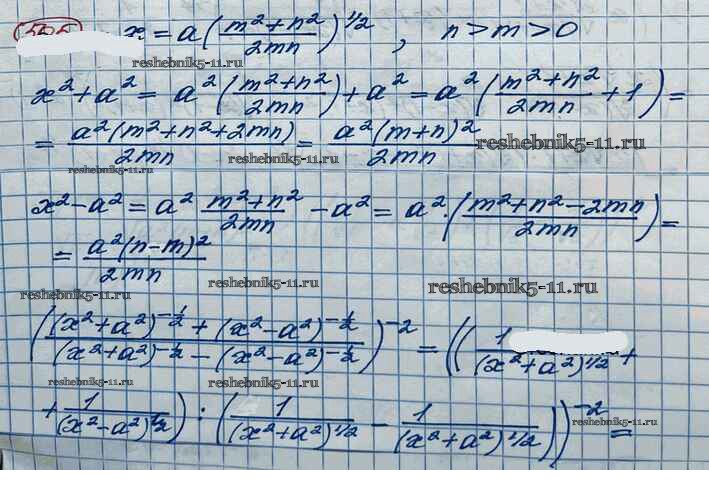 555 x = a((m²+n²)/(2mn))^(1/2), n>m>0
reshebnik5-11.ru
x²+a² = a²((m²+n²)/(2mn))+a² = a²((m²+n²)/(2mn)+1) =
= (a²(m²+n²+2mn))/(2mn) = (a²(m+n)²)/(2mn)
reshebnik5-11.ru reshebnik5-11.ru reshebnik5-11.ru
x²-a² = a² (m²+n²)/(2mn) - a² = a²·((m²+n²-2mn)/(2mn)) =
= (a²(n-m)²)/(2mn)
reshebnik5-11.ru reshebnik5-11.ru reshebnik5-11.ru
(((x²+a²)^(-1/2) + (x²-a²)^(-1/2))/((x²+a²)^(-1/2) - (x²-a²)^(-1/2)))^(-2) = ((1/(x²+a²)^(1/2) +
reshebnik5-11.ru reshebnik5-11.ru
+ 1/(x²-a²)^(1/2)) : (1/(x²+a²)^(1/2) - 1/(x²+a²)^(1/2)))^(-2) =
reshebnik5-11.ru reshebnik5-11.ru